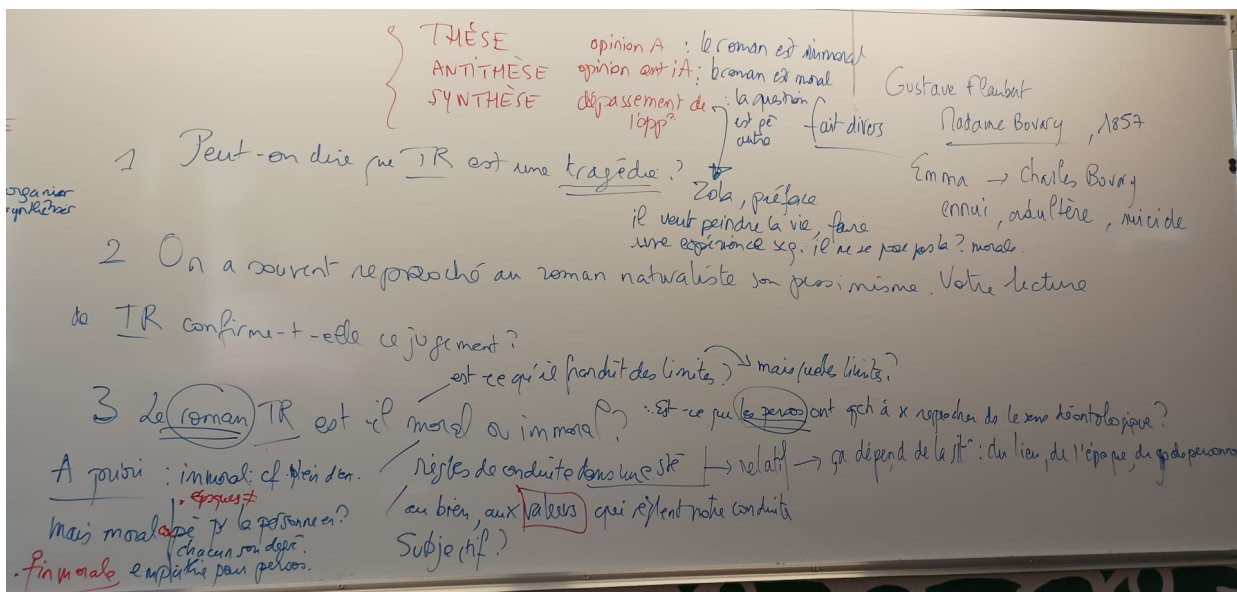 THÈSE opinion A : le roman est immoral
ANTITHÈSE opinion antiA : le roman est moral
SYNTHÈSE dépassement de l'opp° : la question est pê autre
fait divers
Gustave Flaubert
Madame Bovary, 1857
Emma → Charles Bovary
ennui, adultère, suicide
organiser
synthétiser
1 Peut-on dire que TR est une tragédie ?
Zola, préface
il veut peindre la vie, faire
une expérience il ne se pose pas la ? morale
2 On a souvent reproché au roman naturaliste son pessimisme. Votre lecture
de TR confirme-t-elle ce jugement ?
est-ce qu'il franchit des limites ? → mais quelles limites ?
3 Le roman TR est il moral ou immoral ?
Est-ce que les persos ont qch à se reprocher ds le sens déontologique ?
règles de conduite dans une sté → relatif → ça dépend de la : du lieu, de l'époque, du de personnes
au bien, aux valeurs qui règlent notre conduite
Subjectif ?
A priori : immoral : cf plein d'ex.
. époques ≠
Mais moral pê pr la personne ?
chacun son degré.
. fin morale empathie pour persos.